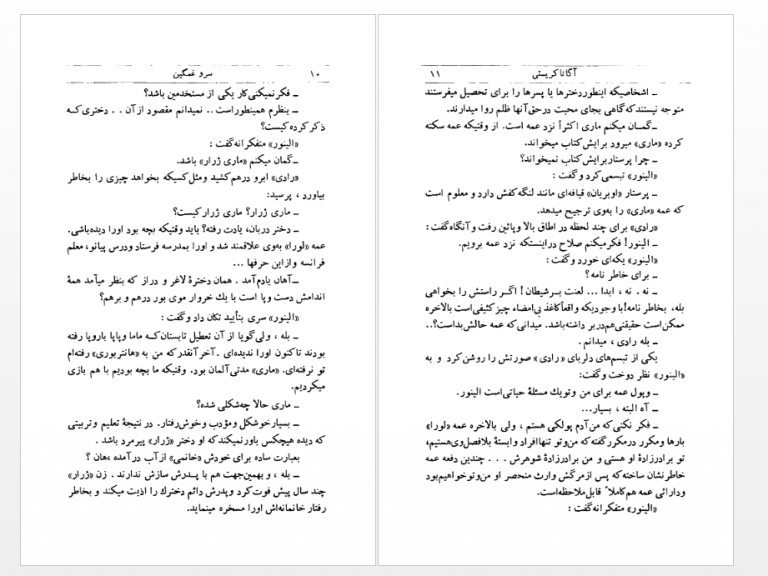 ۱۰ سرو غمگین
ــ فکر نمیکنی کار یکی از مستخدمین باشد؟
ــ بنظرم همینطور است.. نمیدانم مقصود از آن . . دختری که
ذکر کرده کیست؟
«الینور» متفکرانه گفت :
ــ گمان میکنم «ماری ژرار» باشد.
«رادی» ابرو درهم کشید ومثل کسیکه بخواهد چیزی را بخاطر
بیاورد ، پرسید:
ــ ماری ژرار؟ ماری ژرار کیست؟
ــ دختر دربان، یادت رفته؟ باید وقتیکه بچه بود اورا دیده‌باشی.
عمه «لورا» به‌وی علاقمند شد و اورا بمدرسه فرستاد ودرس پیانو، معلم
فرانسه وازاین حرفها ...
ــ آهان یادم آمد . همان دخترهٔ لاغر و دراز که بنظر میآمد همهٔ
اندامش دست وپا است با یك خروار موی بور درهم و برهم؟
«الینور» سری بتأیید تکان داد وگفت :
ــ بله ، ولی گویا از آن تعطیل تابستان کــه ماما وپاپا باروپا رفته
بودند تاکنون اورا ندیده‌ای . آخر آنقدر که من به «هانتربوری» رفته‌ام
تو نرفته‌ای. «ماری» مدتی آلمان بود. وقتیکه ما بچه بودیم با هم بازی
میکردیم.
ــ ماری حالا چه‌شکلی شده؟
ــ بسیار خوشکل ومؤدب وخوش‌رفتار. در نتیجهٔ تعلیم و تربیتی
که دیده هیچکس باور نمیکند که او دختر «ژرار» پیرمرد باشد .
بعبارت ساده برای خودش «خانمی» از آب در آمده ،هان ؟
ــ بله ، و بهمین‌جهت هم با پــدرش سازش ندارند . زن «ژرار»
چند سال پیش فوت کرد وپدرش دائم دخترك را اذیت میکند و بخاطر
رفتار خانمانه‌اش اورا مسخره مینماید.
آگاتا کریستی ۱۱
ــ اشخاصیکه اینطور دخترها یا پسرها را برای تحصیل میفرستند
متوجه نیستند که گاهی بجای محبت درحق آنها ظلم روا میدارند.
ــ گمــان میکنم ماری اکثراً نزد عمه است. از وقتیکه عمه سکته
کرده «ماری» میرود برایش کتاب میخواند.
ــ چرا پرستار برایش کتاب نمیخواند؟
«الینور» تبسمی کرد و گفت :
ــ پرستار «اوبریان» قیافه‌ای مانند لنگه کفش دارد و معلوم است
که عمه «ماری» را به‌وی ترجیح میدهد.
«رادی» برای چند لحظه در اطاق بالا وپائین رفت و آنگاه گفت :
ــ الینور! فکر میکنم صلاح دراینستکه نزد عمه برویم.
«الینور» یکه‌ای خورد وگفت :
ــ برای خاطر نامه ؟
ــ نه . نه ، ابدا ... لعنت بــر شیطان ! اگــر راستش را بخواهی
بله، بخاطر نامه! با وجودیکه واقعاً کاغذ بی‌امضاء چیز کثیفی است بالاخره
ممکن است حقیقتی هم در بر داشته باشد. میدانی که عمه حالش بد است؟..
ــ بله رادی ، میدانم .
یکی از تبسم‌های دلربای «رادی» صورتش را روشن کرد و به
«الینور» نظر دوخت وگفت:
ــ وپول عمه برای من وتو یك مسئلهٔ حیاتی است الینور.
ــ آه البته ، بسیار...
ــ فکر نکنی که من آدم پولکی هستم ، ولی بالاخره عمه «لورا»
بارها ومکرر در مکرر گفته که من وتو تنها افراد وابستهٔ بلافصل وی هستیم،
تو برادرزادهٔ او هستی و من برادرزادهٔ شوهرش . . . چندین دفعه عمه
خاطرنشان ساخته که پس از مرگش وارث منحصر او من وتو خواهیم بود
ودارائی عمه هم کاملاً قابل ملاحظه است.
«الینور» متفکرانه گفت :